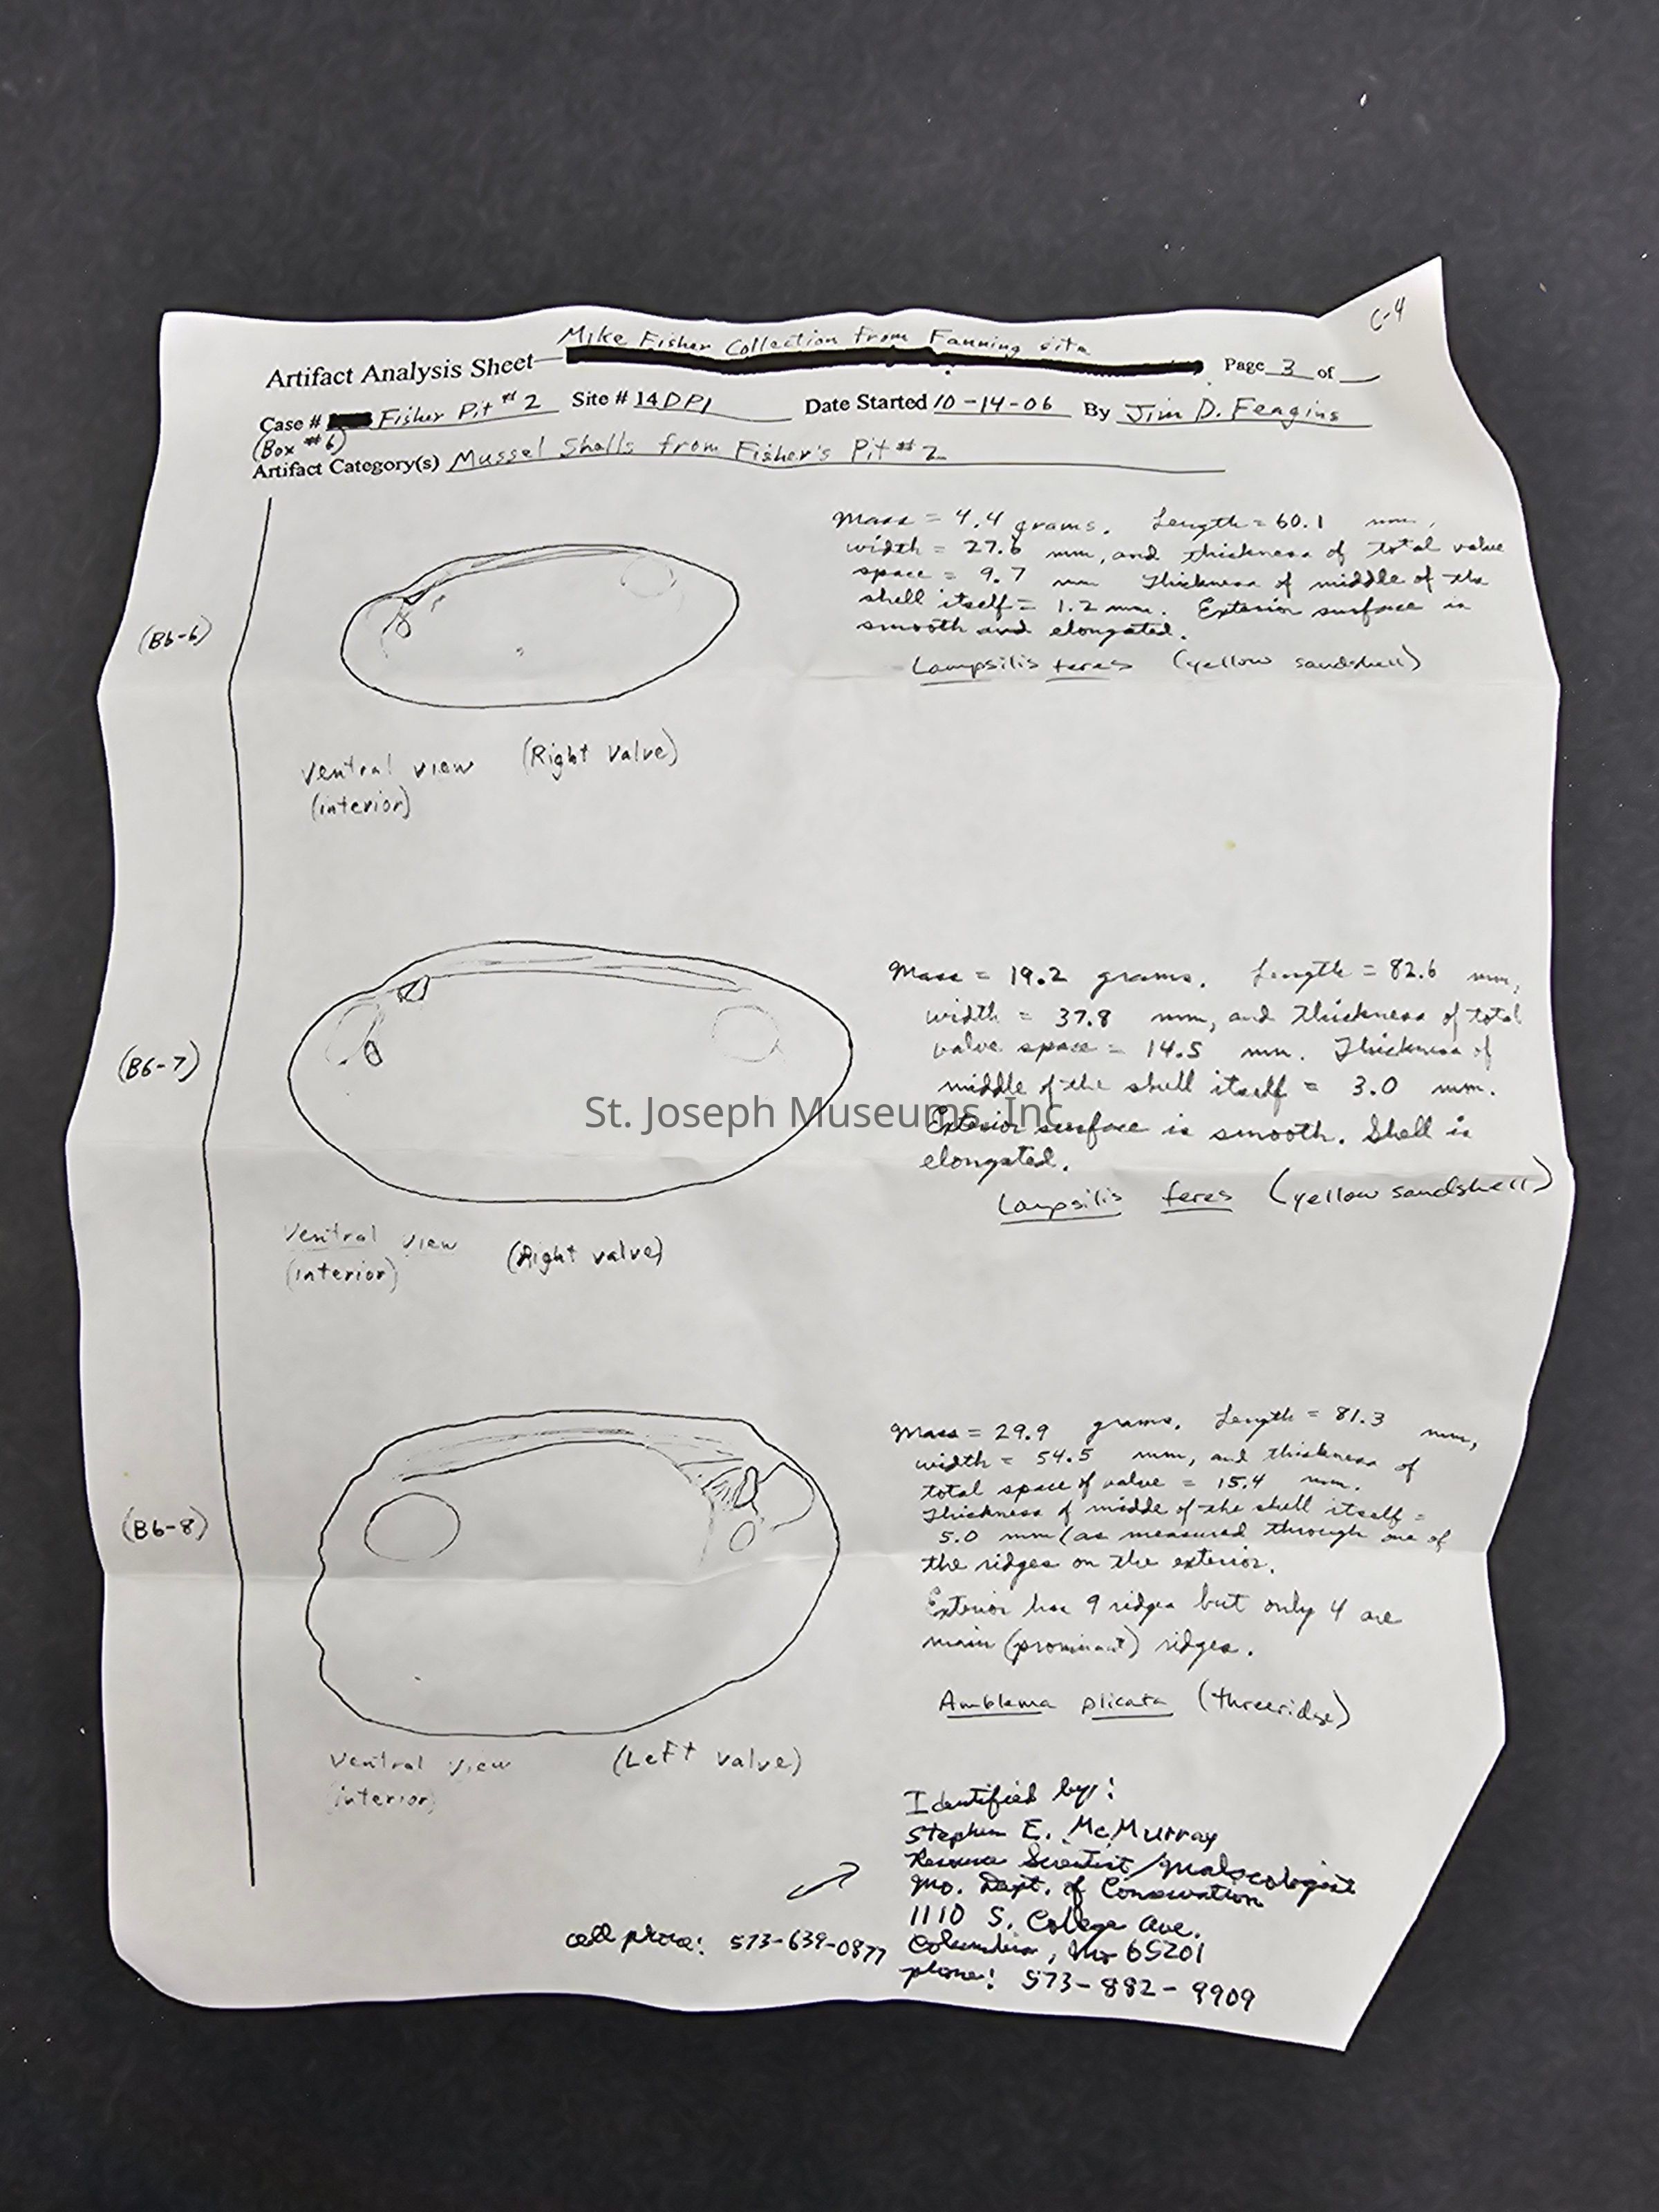 C-4
Mike Fisher Collection from Fanning site
Artifact Analysis Sheet Page 3 of
Case # Fisher Pit #2 Site # 14DP1 Date Started 10-14-06 By Jim D. Feagins
(Box #6)
Artifact Category(s) Mussel Shells from Fisher's Pit #2
(B6-6)
Mass = 4.4 grams. Length = 60.1 mm,
width = 27.6 mm, and thickness of total valve
space = 9.7 mm Thickness of middle of the
shell itself = 1.2 mm. Exterior surface is
smooth and elongated.
Lampsilis teres (yellow sandshell)
Ventral view (Right Valve)
(interior)
(B6-7)
Mass = 19.2 grams. Length = 82.6 mm,
width = 37.8 mm, and thickness of total
valve space = 14.5 mm. Thickness of
middle of the shell itself = 3.0 mm.
Exterior surface is smooth. Shell is
elongated.
Lampsilis teres (yellow sandshell)
Ventral view (Right valve)
(interior)
St. Joseph Museums, Inc
(B6-8)
Mass = 29.9 grams. Length = 81.3 mm,
width = 54.5 mm, and thickness of
total space of valve = 15.4 mm.
Thickness of middle of the shell itself =
5.0 mm (as measured through one of
the ridges on the exterior.
Exterior has 9 ridges but only 4 are
main (prominent) ridges.
Amblema plicata (threeridge)
Ventral view (Left valve)
(interior)
Identified by:
Stephen E. McMurray
Resource Scientist/Malacologist
Mo. Dept. of Conservation
1110 S. College Ave.
Columbia, Mo 65201
phone: 573-882-9909
cell phone: 573-639-0877